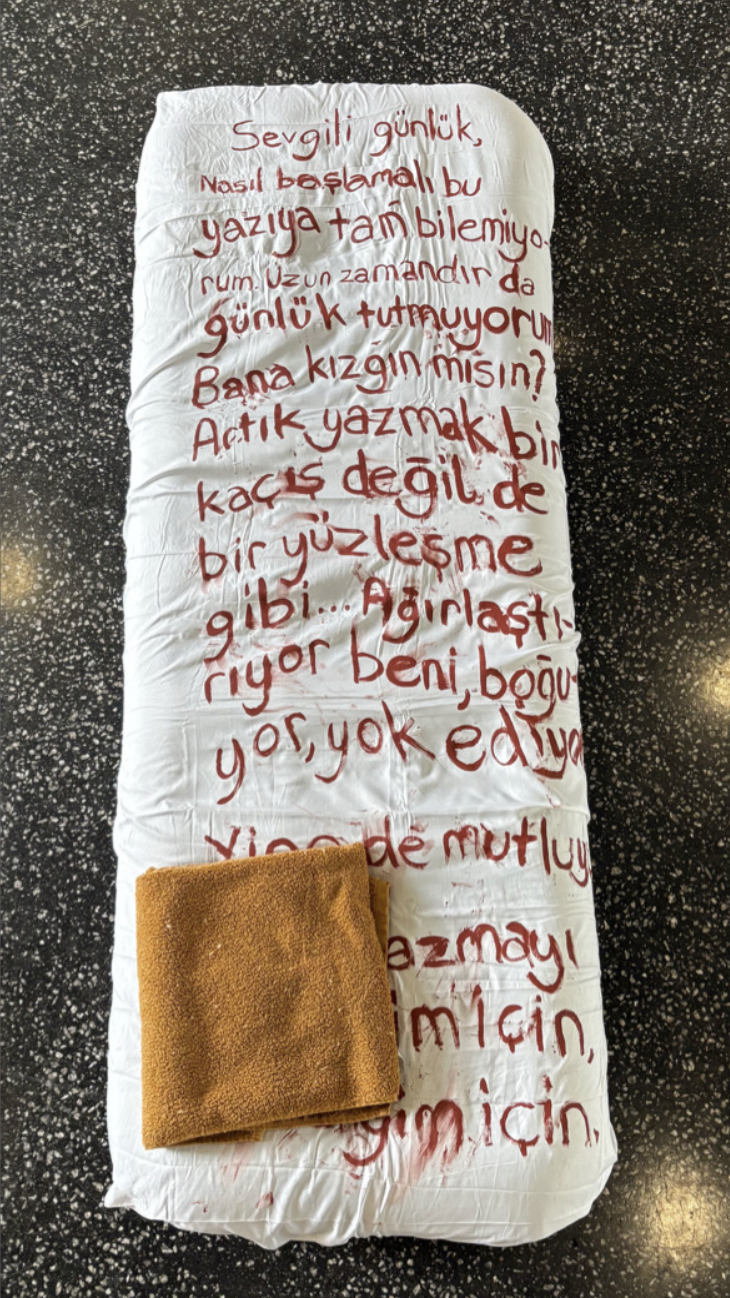 Sevgili günlük,
Nasıl başlamalı bu
yazıya tam bilemiyo-
rum. Uzun zamandır da
günlük tutmuyorum
Bana kızgın mısın?
Artık yazmak bir
kaçış değil de
bir yüzleşme
gibi... Ağırlaştı-
rıyor beni, boğu-
yor, yok ediyo
de mutluy
azmayı
im için,
ğim için.